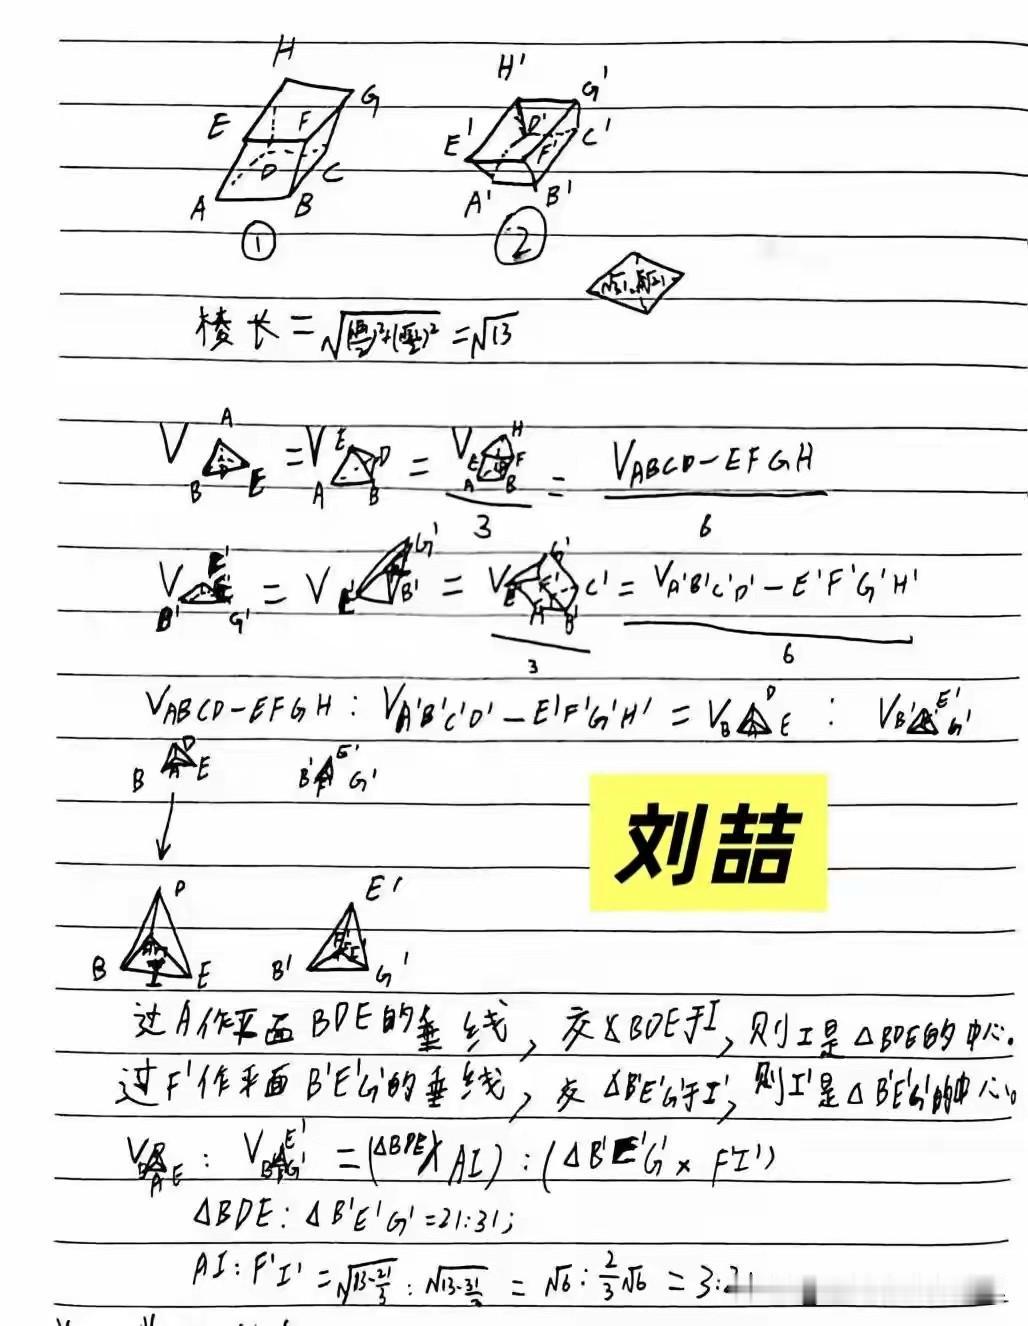 H H' G'
G
E F D' C'
E' F'
D C
A B A' B'
① ②
√21 √31
棱长=√((√21/2)²+(√31/2)²)=√13
V A B E = V E D A B = V H E F A B / 3 = V ABCD-EFGH / 6
V E' B' G' = V G' E' B' = V G' E' C' A' B' / 3 = V A'B'C'D'-E'F'G'H' / 6
V ABCD-EFGH : V A'B'C'D'-E'F'G'H' = V B D E : V B' E' G'
B D A E B' E' G'
刘喆
D E'
B A I E B' F' I' G'
过A作平面BDE的垂线,交△BDE于I,则I是△BDE的中心。
过F'作平面B'E'G'的垂线,交△B'E'G'于I',则I'是△B'E'G'的中心。
V B D A E : V B' E' G' = (△BDE × AI) : (△B'E'G' × F'I')
△BDE:△B'E'G'=21:31;
AI:F'I'=√(13-21/3):√(13-31/3)=√6:2/3√6=3:2